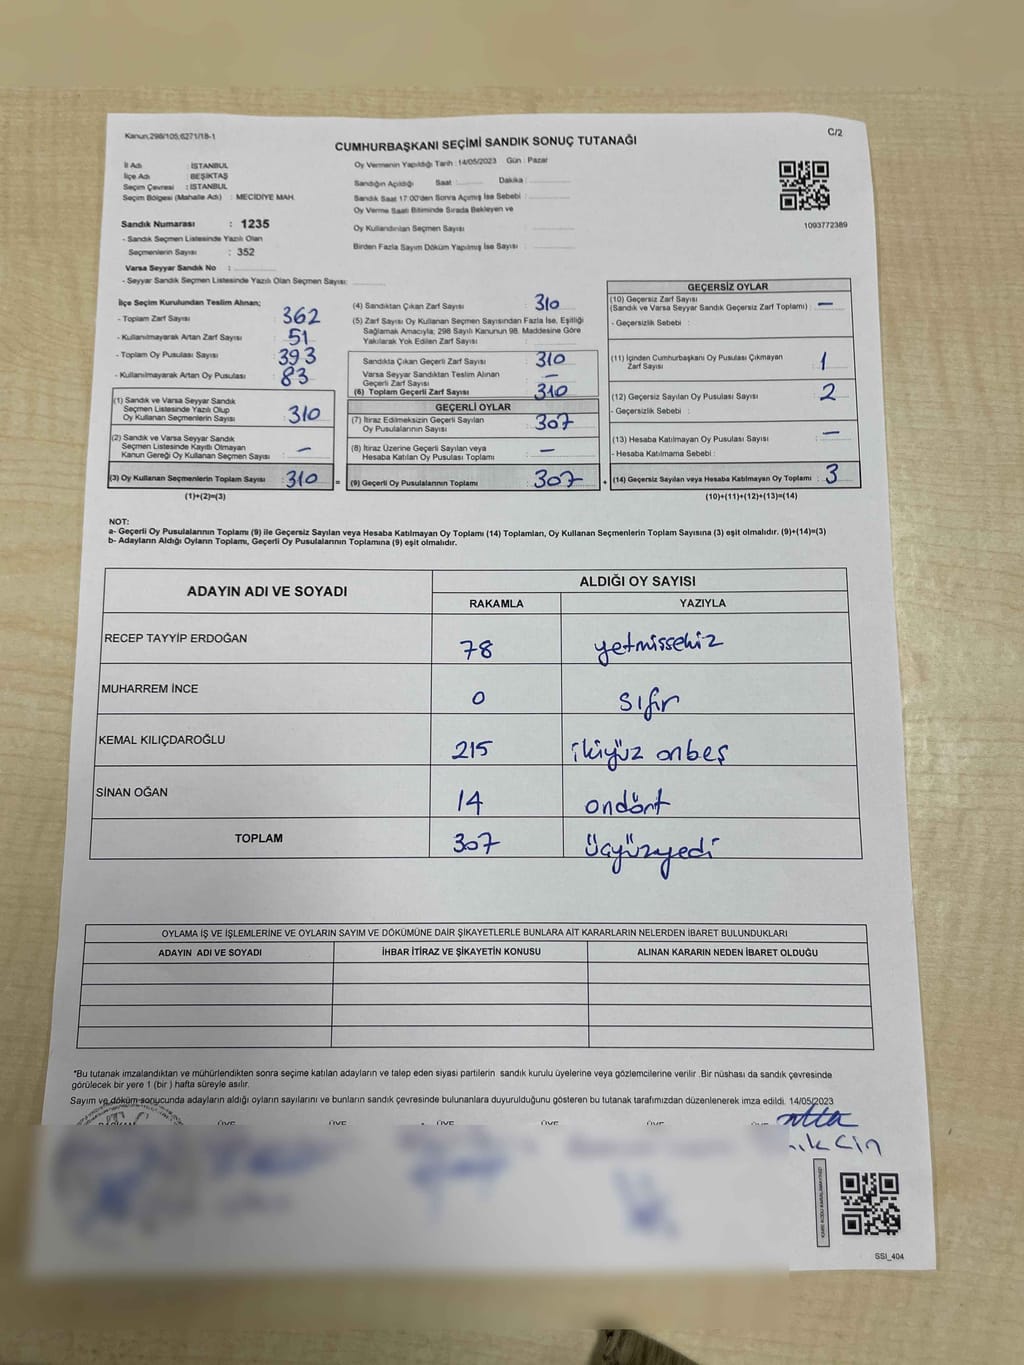 Kanun;298/105;6271/18-1
C/2
CUMHURBAŞKANI SEÇİMİ SANDIK SONUÇ TUTANAĞI
İl Adı : İSTANBUL
İlçe Adı : BEŞİKTAŞ
Seçim Çevresi : İSTANBUL
Seçim Bölgesi (Mahalle Adı) : MECİDİYE MAH.
Sandık Numarası : 1235
- Sandık Seçmen Listesinde Yazılı Olan
Seçmenlerin Sayısı : 352
Varsa Seyyar Sandık No :
- Seyyar Sandık Seçmen Listesinde Yazılı Olan Seçmen Sayısı:
Oy Vermenin Yapıldığı Tarih : 14/05/2023 Gün : Pazar
Sandığın Açıldığı Saat : Dakika :
Sandık Saat 17:00'den Sonra Açımış İse Sebebi :
Oy Verme Saati Bitiminde Sırada Bekleyen ve
Oy Kullandırılan Seçmen Sayısı :
Birden Fazla Sayım Döküm Yapılmış İse Sayısı :
1093772389
İlçe Seçim Kurulundan Teslim Alınan;
- Toplam Zarf Sayısı : 362
- Kullanılmayarak Artan Zarf Sayısı : 51
- Toplam Oy Pusulası Sayısı : 393
- Kullanılmayarak Artan Oy Pusulası : 83
(1) Sandık ve Varsa Seyyar Sandık
Seçmen Listesinde Yazılı Olup
Oy Kullanan Seçmenlerin Sayısı : 310
(2) Sandık ve Varsa Seyyar Sandık
Seçmen Listesinde Kayıtlı Olmayan
Kanun Gereği Oy Kullanan Seçmen Sayısı : -
(3) Oy Kullanan Seçmenlerin Toplam Sayısı : 310 =
(1)+(2)=(3)
(4) Sandıktan Çıkan Zarf Sayısı : 310
(5) Zarf Sayısı Oy Kullanan Seçmen Sayısından Fazla İse, Eşitliği
Sağlamak Amacıyla; 298 Sayılı Kanunun 98. Maddesine Göre
Yakılarak Yok Edilen Zarf Sayısı :
Sandıkta Çıkan Geçerli Zarf Sayısı : 310
Varsa Seyyar Sandıktan Teslim Alınan
Geçerli Zarf Sayısı : -
(6) Toplam Geçerli Zarf Sayısı : 310
GEÇERLİ OYLAR
(7) İtiraz Edilmeksizin Geçerli Sayılan
Oy Pusulalarının Sayısı : 307
(8) İtiraz Üzerine Geçerli Sayılan veya
Hesaba Katılan Oy Pusulası Toplamı : -
(9) Geçerli Oy Pusulalarının Toplamı : 307 +
GEÇERSİZ OYLAR
(10) Geçersiz Zarf Sayısı
(Sandık ve Varsa Seyyar Sandık Geçersiz Zarf Toplamı) : -
- Geçersizlik Sebebi :
(11) İçinden Cumhurbaşkanı Oy Pusulası Çıkmayan
Zarf Sayısı : 1
(12) Geçersiz Sayılan Oy Pusulası Sayısı : 2
- Geçersizlik Sebebi :
(13) Hesaba Katılmayan Oy Pusulası Sayısı : -
- Hesaba Katılmama Sebebi :
(14) Geçersiz Sayılan veya Hesaba Katılmayan Oy Toplamı : 3
(10)+(11)+(12)+(13)=(14)
NOT:
a- Geçerli Oy Pusulalarının Toplamı (9) ile Geçersiz Sayılan veya Hesaba Katılmayan Oy Toplamı (14) Toplamları, Oy Kullanan Seçmenlerin Toplam Sayısına (3) eşit olmalıdır. (9)+(14)=(3)
b- Adayların Aldığı Oyların Toplamı, Geçerli Oy Pusulalarının Toplamına (9) eşit olmalıdır.
ADAYIN ADI VE SOYADI ALDIĞI OY SAYISI
RAKAMLA YAZIYLA
RECEP TAYYİP ERDOĞAN 78 yetmissekiz
MUHARREM İNCE 0 sıfır
KEMAL KILIÇDAROĞLU 215 ikiyüz onbeş
SİNAN OĞAN 14 ondört
TOPLAM 307 üçyüzyedi
OYLAMA İŞ VE İŞLEMLERİNE VE OYLARIN SAYIM VE DÖKÜMÜNE DAİR ŞİKAYETLERLE BUNLARA AİT KARARLARIN NELERDEN İBARET BULUNDUKLARI
ADAYIN ADI VE SOYADI İHBAR İTİRAZ VE ŞİKAYETİN KONUSU ALINAN KARARIN NEDEN İBARET OLDUĞU
*Bu tutanak imzalandıktan ve mühürlendikten sonra seçime katılan adayların ve talep eden siyasi partilerin sandık kurulu üyelerine veya gözlemcilerine verilir .Bir nüshası da sandık çevresinde
görülecek bir yere 1 (bir ) hafta süreyle asılır.
Sayım ve döküm sonucunda adayların aldığı oyların sayılarını ve bunların sandık çevresinde bulunanlara duyurulduğunu gösteren bu tutanak tarafımızdan düzenlenerek imza edildi. 14/05/2023
BAŞKAN ÜYE ÜYE ÜYE ÜYE
SSİ_404